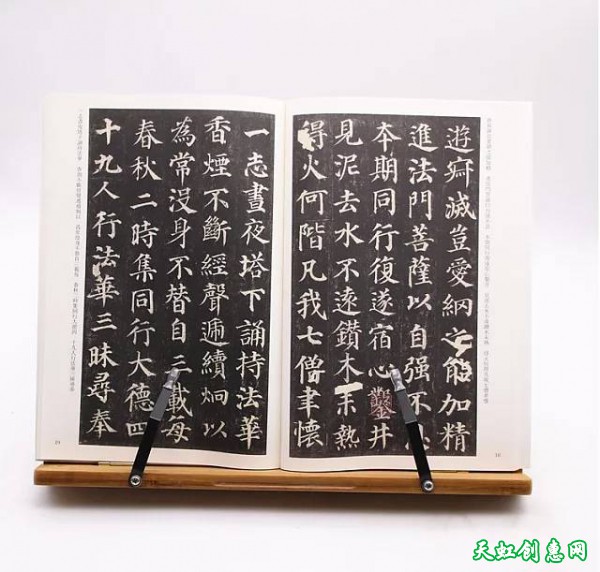 遊寂滅豈愛網之能加精
進法門菩薩以自强不
本期同行復遂宿心鑿井
見泥去水不遠鑽木未熱
得火何階凡我七僧聿懷
一志晝夜塔下誦持法華
香煙不斷經聲遞續炯以
為常没身不替自三載每
春秋二時集同行大德四
十九人行法華三昧尋奉
天虹创意网